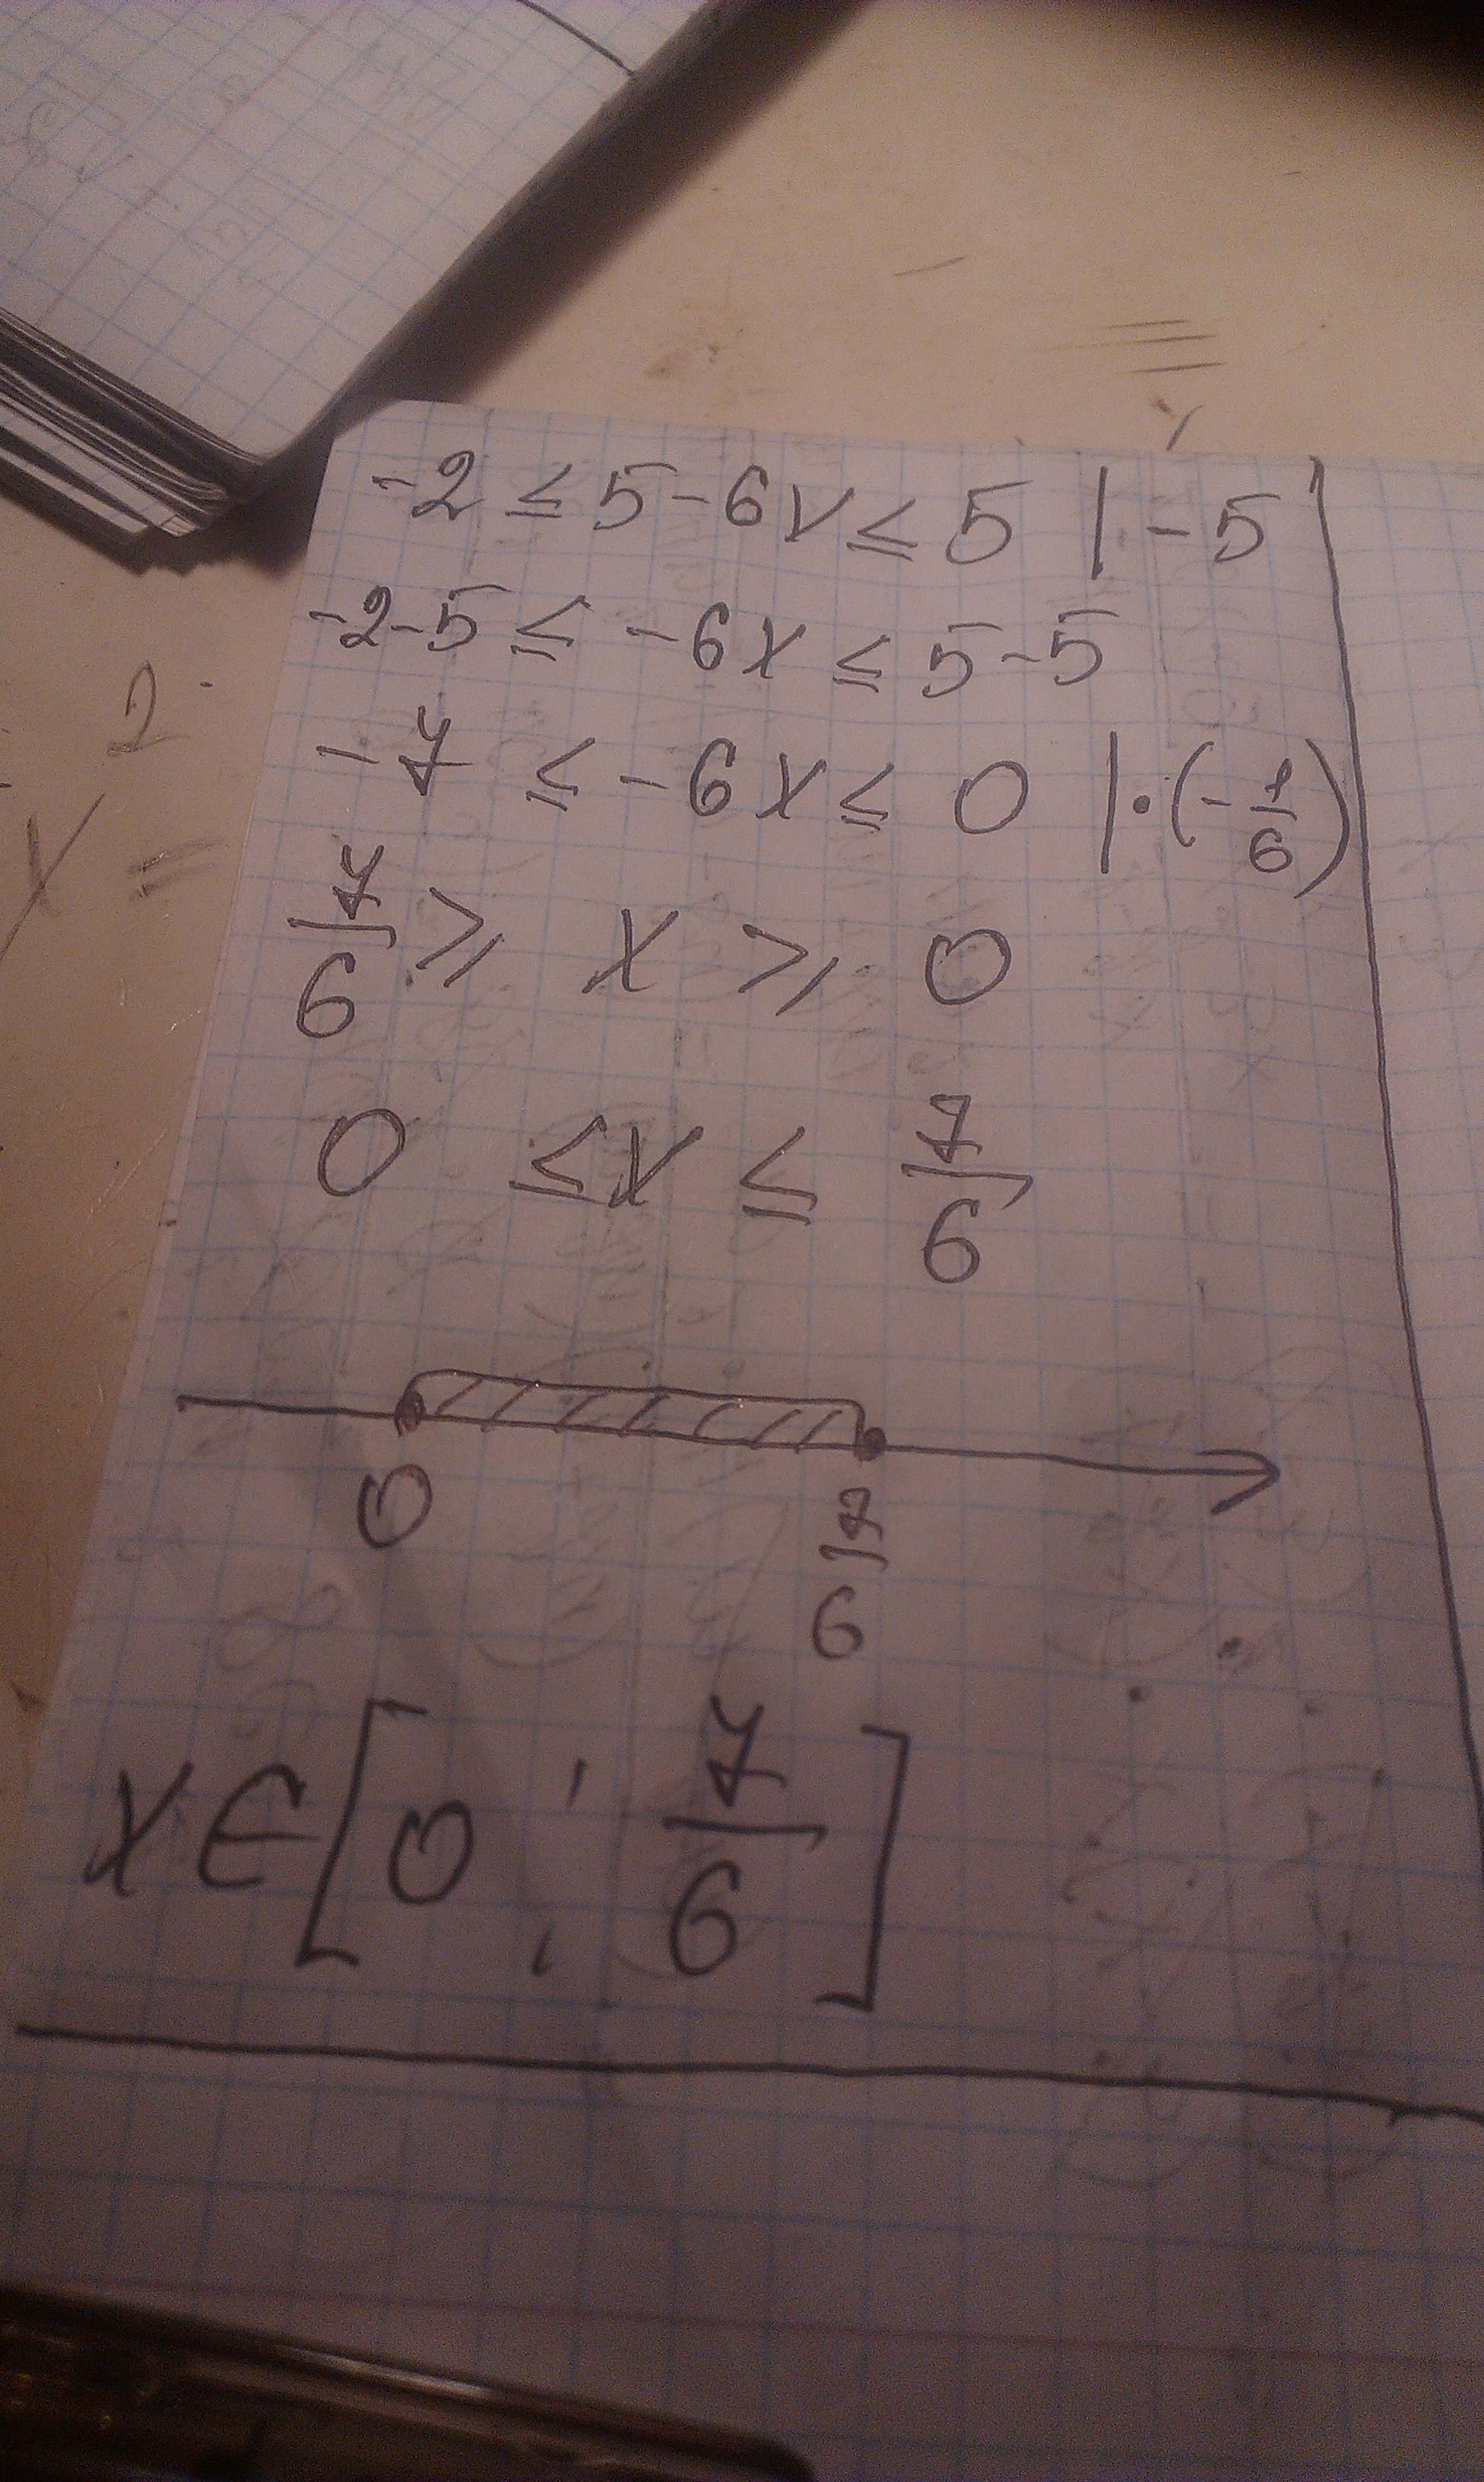 -2 ≤ 5 - 6x ≤ 5 | - 5
-2-5 ≤ -6x ≤ 5-5
-7 ≤ -6x ≤ 0 | · (-1/6)
7/6 ≥ x ≥ 0
0 ≤ x ≤ 7/6
0 7/6
x ∈ [0 ; 7/6]
2
x =